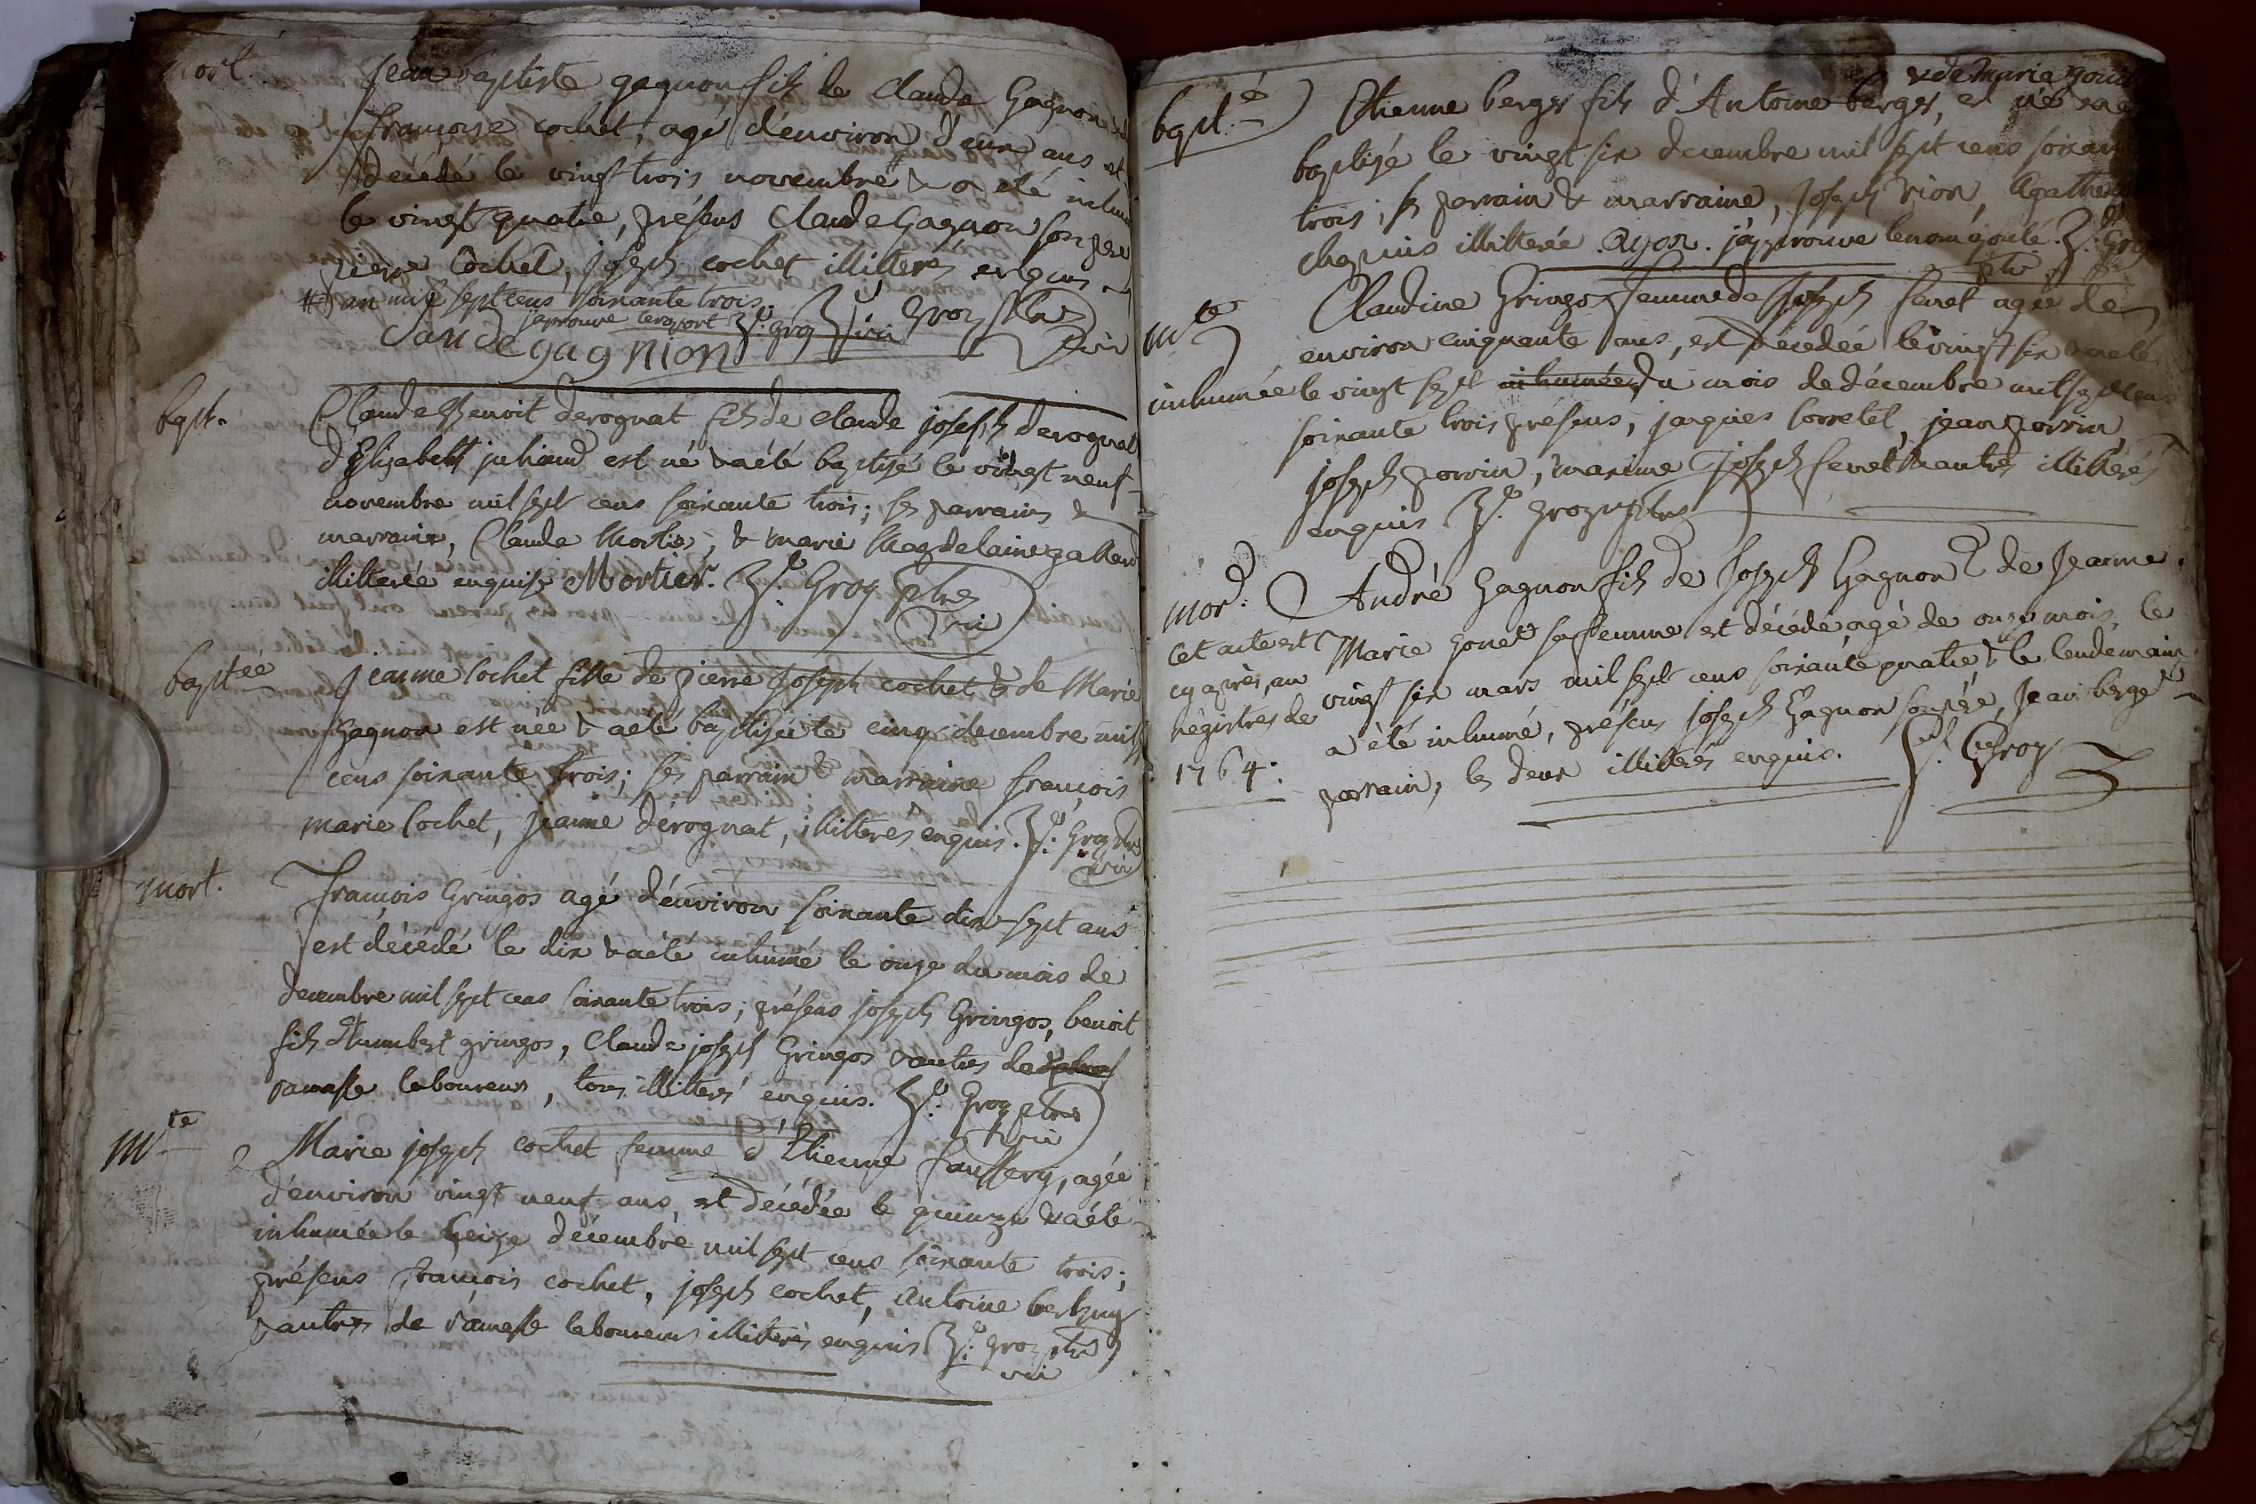 mort.
Jean baptiste gagnon fils de Claude Gagnon &
françoise cochet, agé d'environ d'un ans est
décédé le vingt trois novembre # & a été inhumé
le vingt quatre, présens Claude Gagnon son pere
pierre Cochet, joseph cochet illiterés enquis
#) an mil sept cens soixante trois.
japrouve Groz ptre
Claude gagnion
vic
bapt.
Claude Benoit derognat fils de claude joseph derognat
d'Elizabeth juhand est né & a été baptisé le vingt neuf
novembre mil sept cens soixante trois; ses parrains &
marraine, Claude Mortier, & marie Magdelaine
illiterée enquise Mortier. Groz ptre
vic
baptée
Jeanne Cochet fille de pierre joseph cochet & de Marie
Gagnon est née & a été baptisée le cinq decembre mil
cens soixante trois; ses parrain & marraine françois
marie Cochet, jeanne dérognat, illiterés enquis. Groz ptre
vic
mort.
françois Gringos agé d'environ soixante dix-sept ans
est décédé le dix & a été inhumé le onze du mois de
decembre mil sept cens soixante trois; présens joseph Gringos, benoit
fils d'humbert gringos, Claude joseph Gringos & autres de
ramasse laboureurs, tous illiterés enquis. Groz ptre
vic
mte
Marie joseph cochet femme d'Etienne faussery, agée
d'environ vingt neuf ans, est décédée le quinze & a été
inhumée le seize décembre mil sept cens soixante trois;
présens françois cochet, joseph cochet, antoine
& autres de ramasse laboureurs illiterés enquis Groz ptre
vic
bapté
& de maria
Etienne berger fils d'Antoine berger, est né & a
baptisé le vingt six decembre mil sept cens soixante
trois; ses parrain & marraine, Joseph vion, Agathe
chapuis illiterée. vyon. j'approuve le nom ajouté. Groz
ptre
mte
Claudine Gringos femme de Joseph feret agée de
environ cinquante ans, est décédée le vingt six & a été
inhumée le vingt sept inhumée du mois de décembre mil sept cens
soixante trois présens, jacques Corretel, jean porrin,
joseph porrin, maxime Joseph feret & autres illiterés
enquis Groz ptre
mort.
André Gagnon fils de Joseph Gagnon & de Jeanne
Marie gonet sa femme est décédé, agé de onze mois, le
vingt six mars mil sept cens soixante quatre & le lendemain
a été inhumé, présens joseph Gagnon son pere, Jean berger
parrain, les deux illiterés enquis. Groz
cet acte est
cy après, au
régistres de
1764.